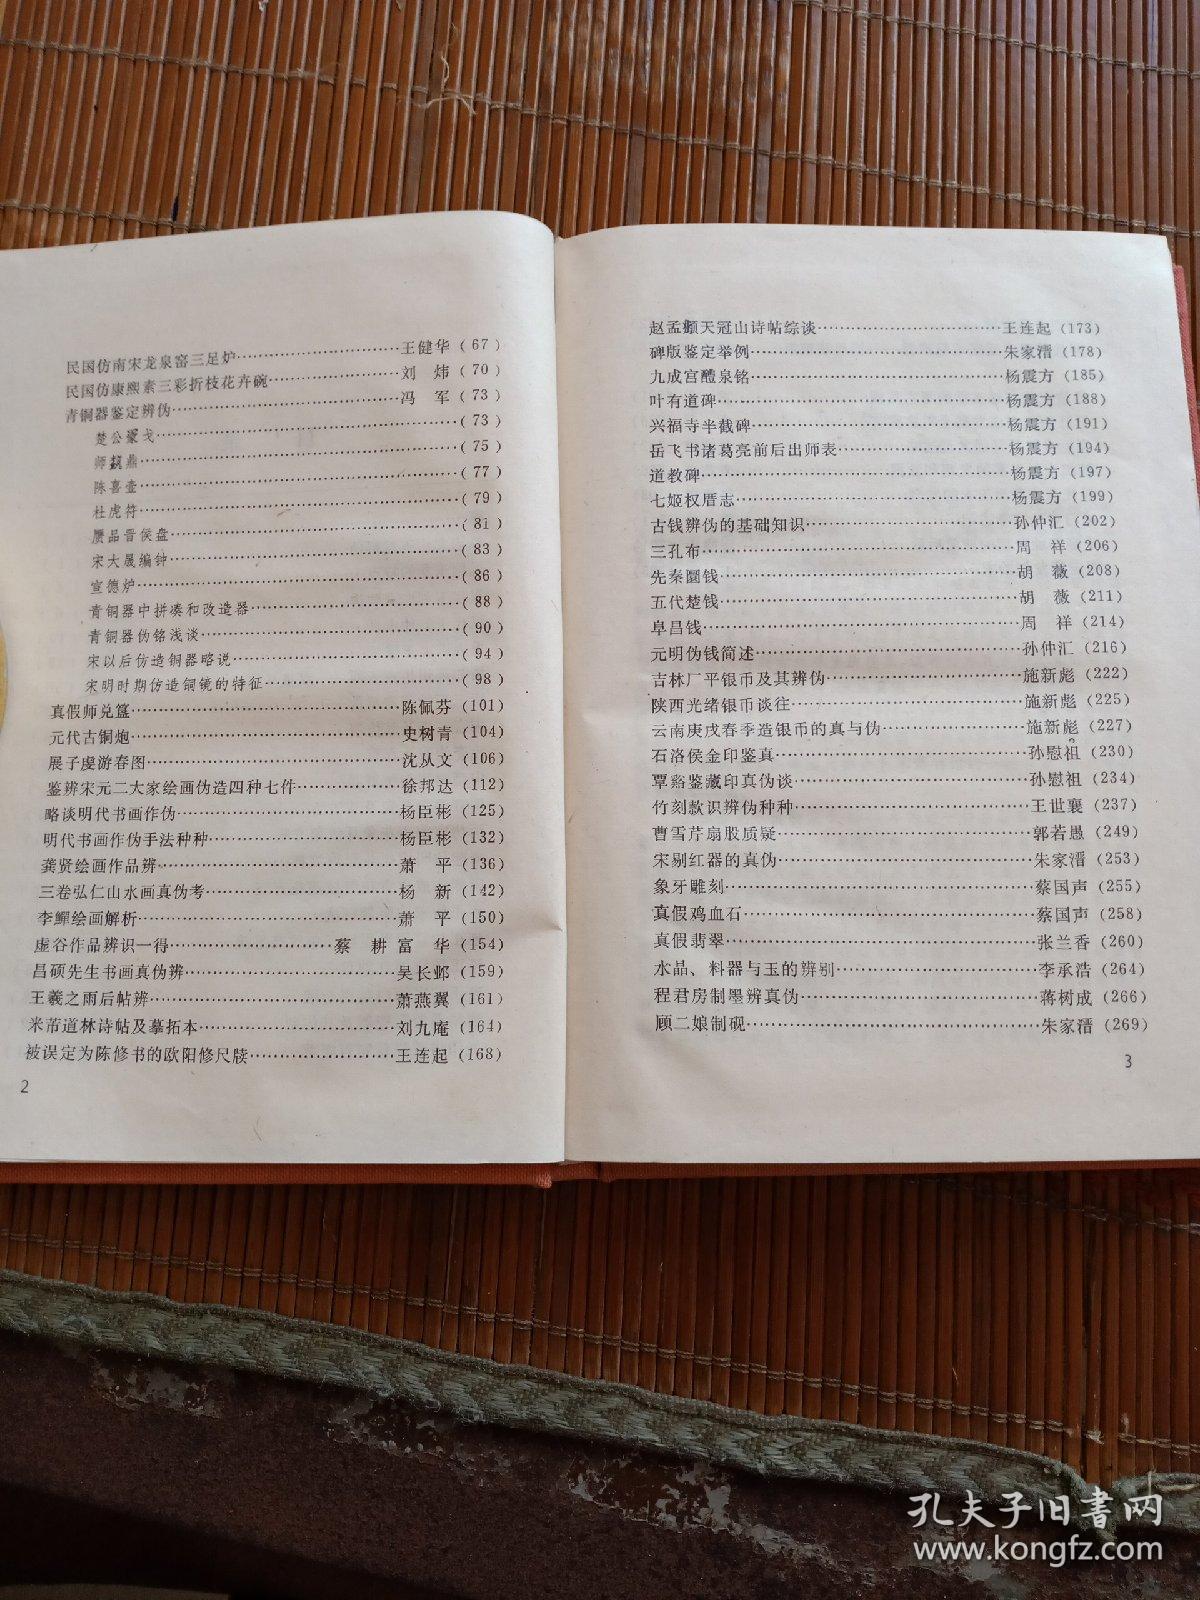 民国仿南宋龙泉窑三足炉……王健华(67)
民国仿康熙素三彩折枝花卉碗……刘　炜(70)
青铜器鉴定辨伪……冯　军(73)
楚公戈……(73)
师燕……(75)
陈喜壶……(77)
杜虎符……(79)
赝品晋侯盘……(81)
宋大晟编钟……(83)
宣德炉……(86)
青铜器中拼凑和改造器……(88)
青铜器伪铭浅谈……(90)
宋以后仿造铜器略说……(94)
宋明时期仿造铜镜的特征……(98)
真假师兑簋……陈佩芬(101)
元代古铜炮……史树青(104)
展子虔游春图……沈从文(106)
鉴辨宋元二大家绘画伪造四种七件……徐邦达(112)
略谈明代书画作伪……杨臣彬(125)
明代书画作伪手法种种……杨臣彬(132)
龚贤绘画作品辨……萧　平(136)
三卷弘仁山水画真伪考……杨　新(142)
李鱓绘画解析……萧　平(150)
虚谷作品辨识一得……蔡耕富华(154)
昌硕先生书画真伪辨……吴长邺(159)
王羲之雨后帖辨……萧燕翼(161)
米芾道林诗帖及摹拓本……刘九庵(164)
被误定为陈修书的欧阳修尺牍……王连起(168)
2
赵孟頫天冠山诗帖综谈……王连起(173)
碑版鉴定举例……朱家溍(178)
九成宫醴泉铭……杨震方(185)
叶有道碑……杨震方(188)
兴福寺半截碑……杨震方(191)
岳飞书诸葛亮前后出师表……杨震方(194)
道教碑……杨震方(197)
七姬权厝志……杨震方(199)
古钱辨伪的基础知识……孙仲汇(202)
三孔布……周　祥(206)
先秦圜钱……胡　薇(208)
五代楚钱……胡　薇(211)
阜昌钱……周　祥(214)
元明伪钱简述……孙仲汇(216)
吉林厂平银币及其辨伪……施新彪(222)
陕西光绪银币谈往……施新彪(225)
云南庚戌春季造银币的真与伪……施新彪(227)
石洛侯金印鉴真……孙慰祖(230)
覃谿鉴藏印真伪谈……孙慰祖(234)
竹刻款识辨伪种种……王世襄(237)
曹雪芹扇股质疑……郭若愚(249)
宋剔红器的真伪……朱家溍(253)
象牙雕刻……蔡国声(255)
真假鸡血石……蔡国声(258)
真假翡翠……张兰香(260)
水晶、料器与玉的辨别……李承浩(264)
程君房制墨辨真伪……蒋树成(266)
顾二娘制砚……朱家溍(269)
3
孔夫子旧書网
www.kongfz.com